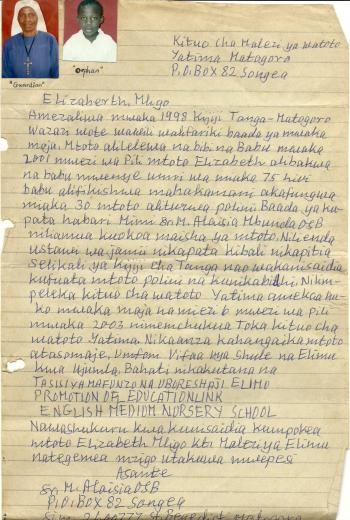 "Guardian"
"Orphan"
Kituo cha Malezi ya watoto
Yatima Matogoro
P.O.BOX 82 Songea
Elizaberth, Mligo
Amezaliwa mwaka 1998 Kijiji Tanga-Matogoro
wazazi wote wawili walifariki baada ya mwaka
moja. Mtoto alilelewa na bibi na Babu mwaka
2001 mwezi wa Pili mtoto Elizabeth alibakwa
na babu mwenye umri wa miaka 75 hivi
babu alifikishwa mahakamani akafungwa
miaka 30 mtoto akturwa polini Baada ya ku-
pata habari Mimi Sr. M. Alaisia Mbunda OSB
niliamua kuokoa maisha ya mtoto. Nilienda
ustawi wa jamii nikapata kibali nikapitia
selikali ya kijiji cha Tanga nao wakanisaidia
kufuata mtoto polini na kunikabidhi, Nikm-
peleka kituo cha watoto Yatima amekaa hu-
ko mwaka moja na miezi 6 mwezi wa pili
mwaka 2003 nimemchukua Toka kituo cha
watoto Yatima. Nikaanza kahangaika mtoto
atasomaje, Vifaa vya Shule na Elimu
kwa ujumla. Bahati nikakutana na
TASISI YA MAFUNZO NA UBORESHAJI ELIMO
PROMOTION OF EDUCATIONLINK
ENGLISH MEDIUM NURSERY SCHOOL
Nawashukuru kwa kunisaidia kumpokea
mtoto Elizabeth Mligo kti Malezi ya Elimu
nategemea mzigo utakuwa mwepesi
Asante
Sr. M. Alaisia OSB
P.O.BOX 82 Songea